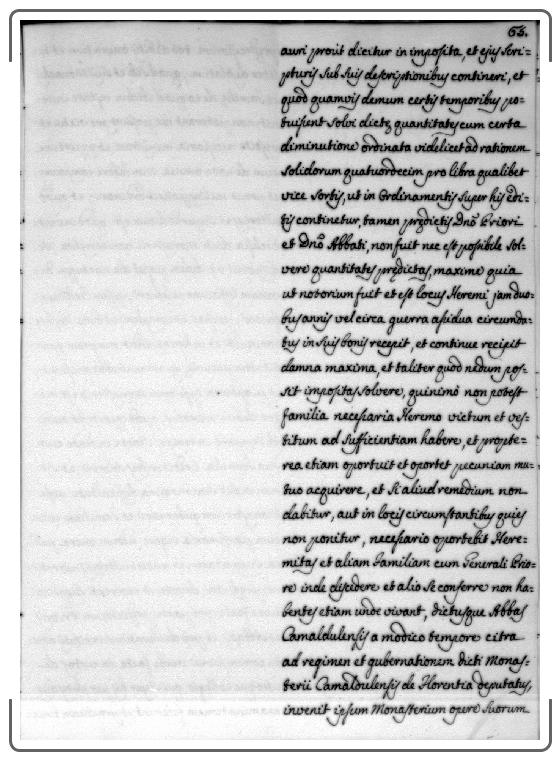 65.
auri prout dicitur in imposita, et ejus scri=
pturis sub suis descriptionibus contineri, et
quod quamvis demum certis temporibus po=
tuissent solvi dictę quantitates cum certa
diminutione ordinata videlicet ad rationem
solidorum quatuordecim pro libra qualibet
vice sortis, ut in Ordinamentis super his edi=
tis continetur, tamen prędictis Dno Priori
et Dno Abbati, non fuit nec est possibile sol=
vere quantitates prędictas, maxime quia
ut notorium fuit et est locus Heremi jam duo=
bus annis vel circa guerra assidua circumda=
tus in suis bonis recepit, et continue recipit
damna maxima, et taliter quod nedum pos=
sit impositas solvere, quinimò non potest
familia necessaria Heremo victum et ves=
titum ad sufficientiam habere, et propte=
rea etiam oportuit et oportet pecuniam mu=
tuo acquirere, et si aliud remedium non
dabitur, aut in locis circumstantibus quies
non ponitur, necessario oportebit Here=
mitas et aliam Familiam cum Generali Prio=
re inde discedere et alio se conferre non ha=
bentes etiam unde vivant, dictusque Abbas
Camaldulensis a modico tempore citra
ad regimen et gubernationem dicti Monas=
terii Camaldulensis de Florentia deputatus,
invenit ipsum Monasterium opere suorum